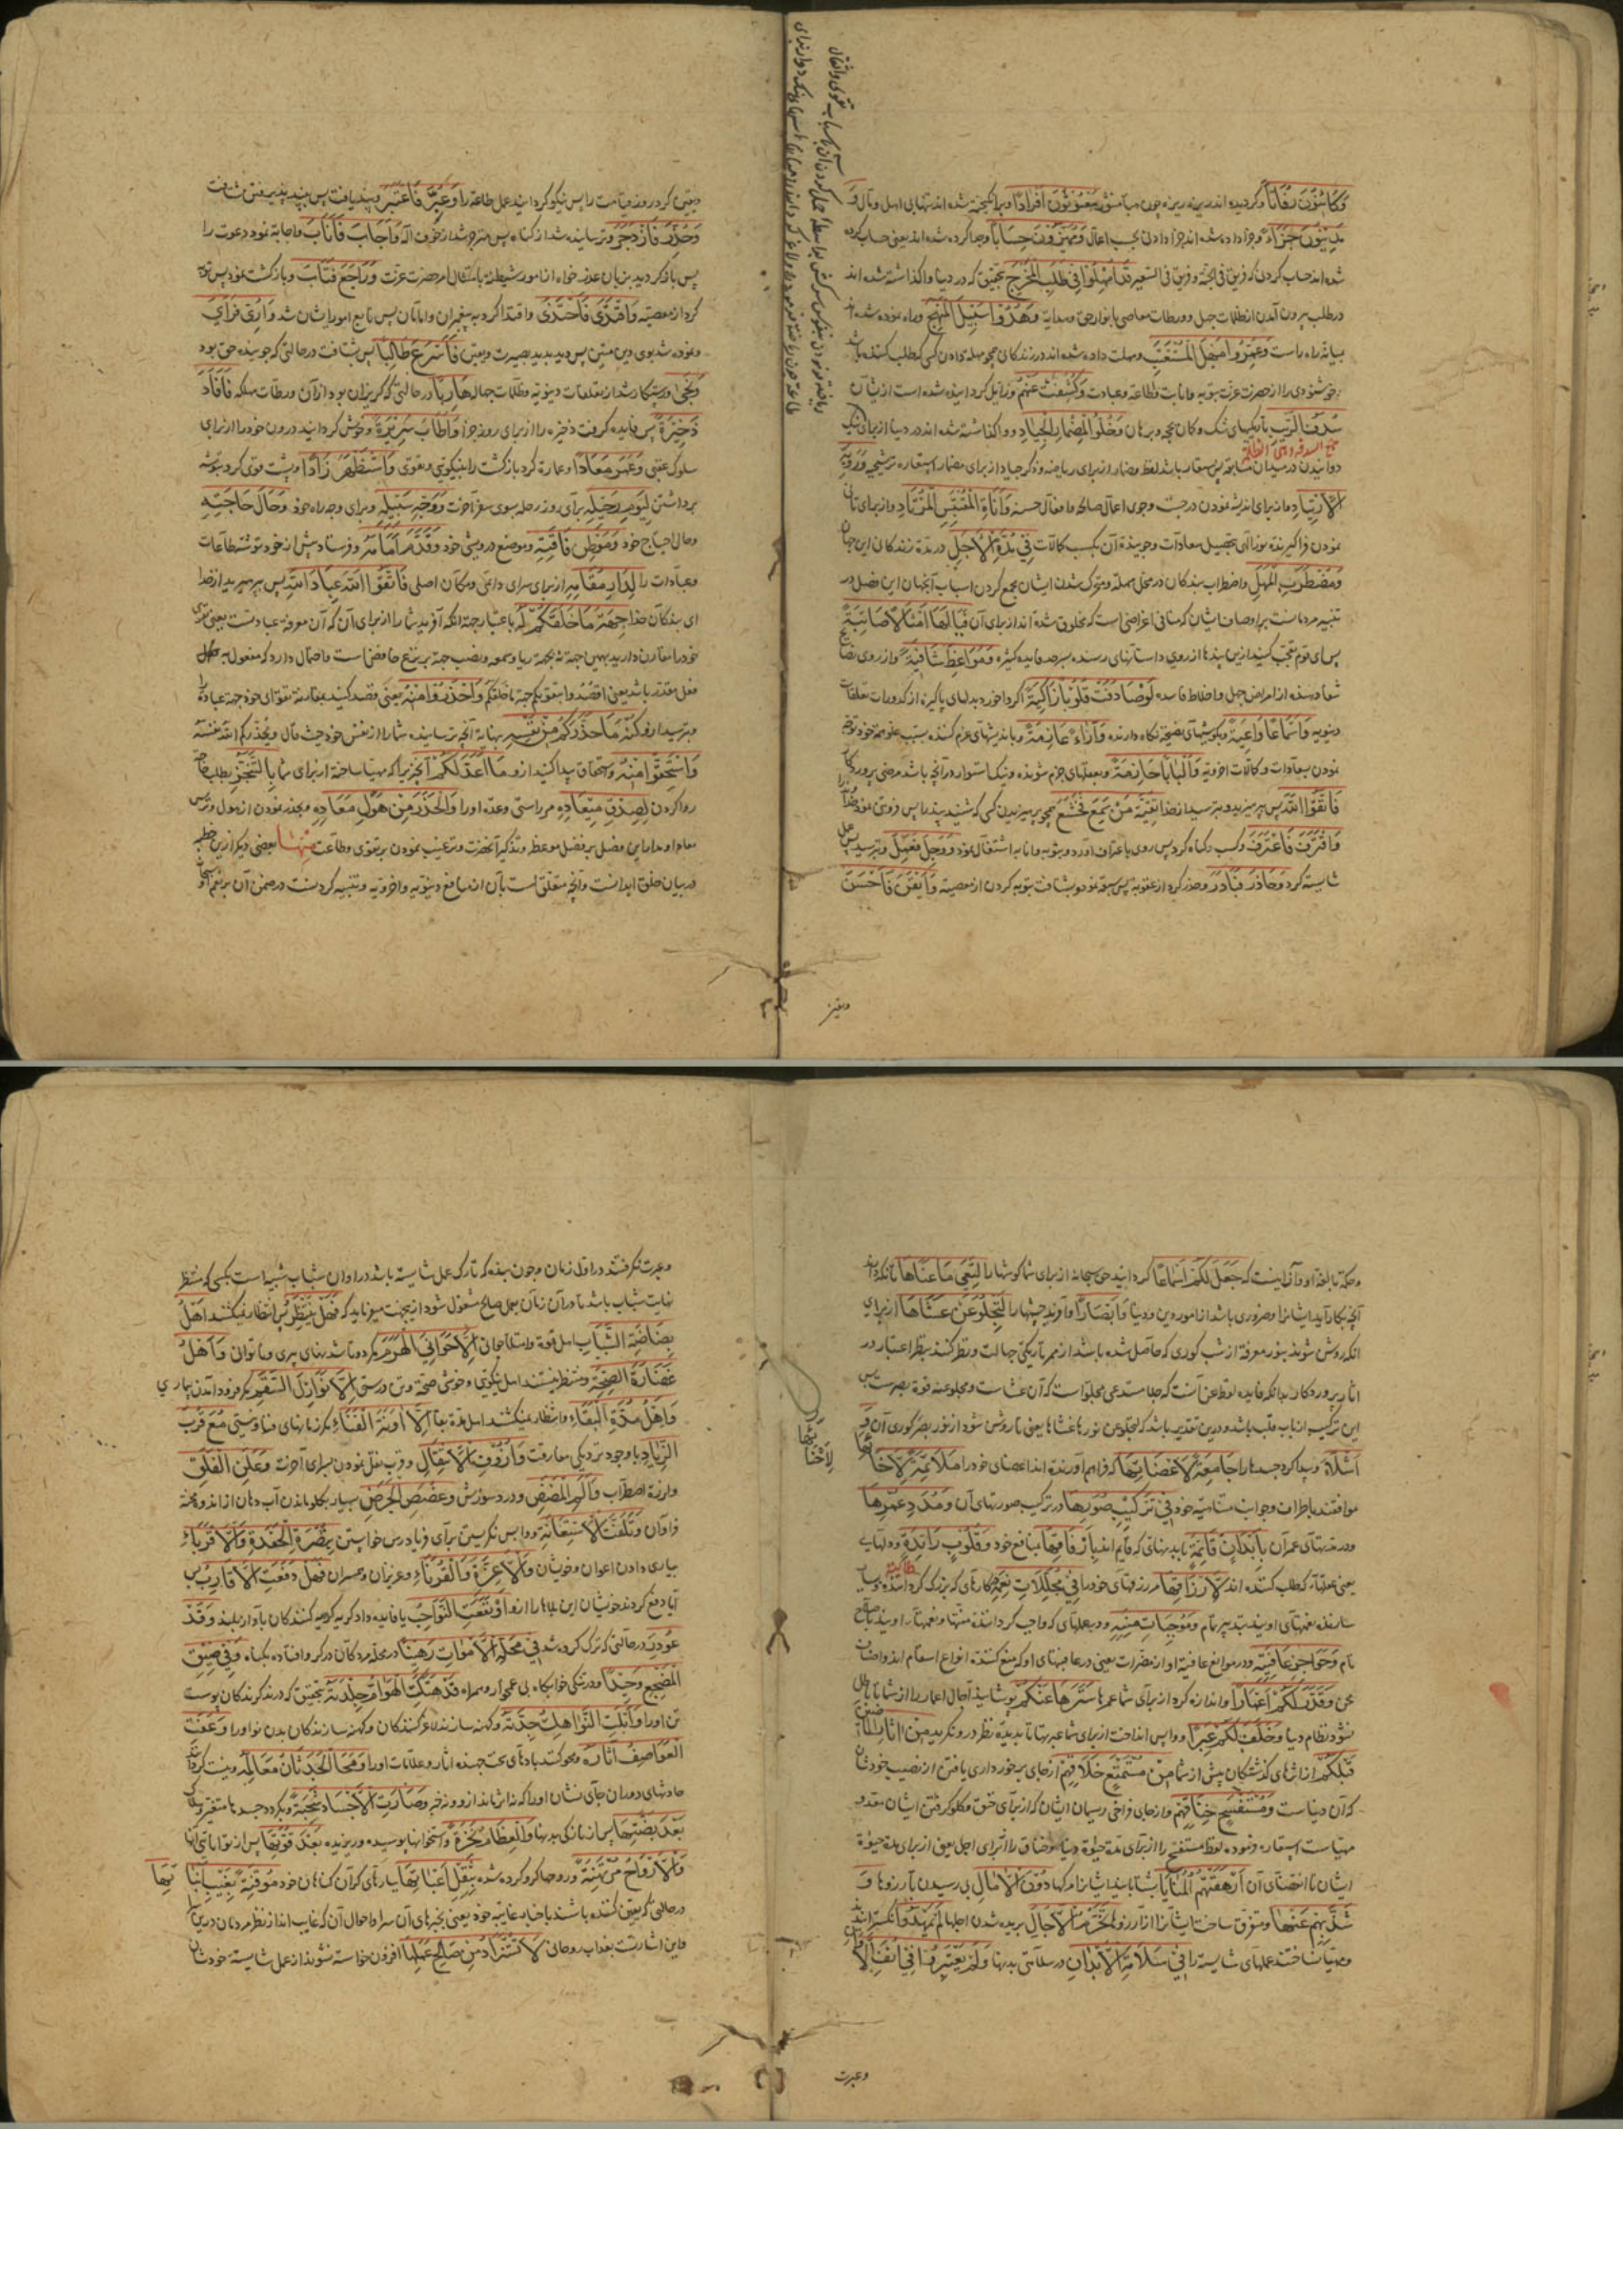 وَكَائِنُونَ رُفَاتًا وکردیده اند ریزه ریزه چون هباء منثور مَبْعُوثُونَ أَفْرَادًا وبرانکیخته شده اند تنها بی اهل ومال وَ
مَدِينُونَ جَزَاءً وجزا داده شده اند جزا دادنی بحسب اعمال وَمُمَيَّزُونَ حِسَابًا وجدا کرده شده اند یعنی حساب کرده
شده اند حساب کردن که فریق فی الجنة وفریق فی السعیر قَدْ أُمْهِلُوا فِي طَلَبِ الْمَخْرَجِ بتحقیق که در دنیا واکذاشته شده اند
در طلب بیرون آمدن از ظلمات جهل وورطات معاصی بانوار حق وهدایة وَهُدُوا سَبِيلَ الْمَنْهَجِ وراه نموده شده اند
بمیانه راه راست وَعُمِّرُوا مَهَلَ الْمُسْتَعْتِبِ ومهلت داده شده اند در زندکانی همچو مهلة دادن کسی که طلب کننده باشد
خوشنودی را از حضرت عزت بتوبه وانابت وطاعة وعبادت وَكُشِفَتْ عَنْهُمْ وزایل کردانیده شده است از ایشان
سُدَفُ الرِّيَبِ تاریکیهای شک وکمان بحجه وبرهان وَخُلُّوا لِمِضْمَارِ الْجِيَادِ وواکذاشته شده اند در دنیا از برای نیک
دوانیدن در میدان مسابقه پس مستعار باشد لفظ مضمار از برای ریاضة وذکر جیاد از برای مضمار استعاره ترشیحیه وَرَوِيَّةِ
الارْتِيَادِ واز برای اندیشه نمودن در جست وجوی اعمال صالحه وافعال حسنه وَأَنَاةِ الْمُقْتَبِسِ الْمُرْتَادِ واز برای تأنی
نمودن فراکیرنده نور الهی بتحصیل سعادات وجوینده آن بکسب کمالات فِي مُدَّةِ الاجَلِ در مدة زندکانی این جهان
وَمُضْطَرَبِ الْمَهَلِ واضطراب بندکان در محل مهلة ومتحرک شدن ایشان بجمع کردن اسباب آنجهان این فصل در
تنبیه مردمانست بر اوصاف ایشان که منافی اغراضی است که مخلوق شده اند از برای آن فَيَا لَهَا أَمْثَالًا صَائِبَةً
پس ای قوم تعجب کنید ازین پندها از روی داستانهای رسنده بسرحد فایده کثیره وَمَوَاعِظَ شَافِيَةً واز روی نصایح
شفا دهنده از امراض جهل واخلاط فاسده لَوْ صَادَفَتْ قُلُوبًا زَاكِيَةً اکر واخورد بدلهای پاکیزه از کدورات تعلقات
دنیویه وَأَسْمَاعًا وَاعِيَةً وبکوشهای نصیحة نکاه دارنده وَآرَاءً عَازِمَةً وباندیشهای عزم کننده بسبب علو همة خود توجه
نمودن بسعادات وکمالات اخرویه وَأَلْبَابًا حَازِمَةً وبعقلهای جزم شونده ونیک استوار در آنچه باشد مرضی پروردکار
فَاتَّقُوا اللَّهَ پس بپرهیزید وبترسید از خدا تَقِيَّةَ مَنْ سَمِعَ فَخَشَعَ همچو پرهیزیدن کسی که شنید پند را پس فروتنی نمود خدا را
وَاقْتَرَفَ فَاعْتَرَفَ وکسب کناه کرد پس روی باعتراف آورد وبتوبه وانابه اشتغال نمود وَوَجِلَ فَعَمِلَ وبترسید پس عمل
شایسته کرد وَحَاذَرَ فَبَادَرَ وحذر کرد از عقوبة پس سبقة نمود وبشتافت بتوبه کردن از معصیة وَأَيْقَنَ فَأَحْسَنَ
ویقین
ویقین کرد روز قیامت را پس نیکو کردانید عمل طاعة را وَعُبِّرَ فَاعْتَبَرَ وپند یافت پس بپند پذیرفتن شتافت
وَحُذِّرَ فَازْدَجَرَ وترسانیده شد از کناه پس منزجر شد از خوف اله وَأَجَابَ فَأَنَابَ واجابة نمود دعوت را
پس بازکردید بزبان عذر خواه از امور شیطنة بامتثال امر حضرت عزت وَرَاجَعَ فَتَابَ وبازکشت نمود پس توبه
کرد از معصیة وَاقْتَدَى فَاحْتَذَى واقتدا کرد به پیغمبران وامامان پس تابع امور ایشان شد وَأُرِيَ فَرَأَى
ونموده شد بوی دین متین پس دید بدیده بصیرت ویقین فَأَسْرَعَ طَالِبًا پس شتافت در حالتی که جوینده حق بود
وَنَجَى ورستکار شد از تعلقات دنیویه وظلمات جهاله هَارِبًا در حالتی که کریزان بود از آن ورطات مهلکه فَأَفَادَ
ذَخِيرَةً پس فایده کرفت ذخیره را از برای روز جزا وَأَطَابَ سَرِيرَةً وخوش کردانید درون خود را از برای
سلوک عقبی وَعَمَرَ مَعَادًا وعمارة کرد بازکشت را به نیکوئی وتقوی وَاسْتَظْهَرَ زَادًا وپشت قوی کرد بتوشه
برداشتن لِيَوْمِ رَحِيلِهِ برای روز رحلة بسوی سفر آخرت وَوَجْهِ سَبِيلِهِ وبرای وجه راه خود وَحَالِ حَاجَتِهِ
وحال احتیاج خود وَمَوْطِنِ فَاقَتِهِ وموضع درویشی خود وَقَدَّمَ أَمَامَهُ وفرستاد پیش از خود توشه طاعات
وعبادات را لِدَارِ مُقَامِهِ از برای سرای دائمی ومکان اصلی فَاتَّقُوا اللَّهَ عِبَادَ اللَّهِ پس بپرهیزید از خدا
ای بندکان خدا جِهَةَ مَا خَلَقَكُمْ لَهُ باعتبار جهة آنکه آفرید شما را از برای آن که آن معرفة وعبادتست یعنی تقوی
خود را مقارن دارید بهمین جهة نه بجهة ریا وسمعه ونصب جهة بر نزع خافض است واحتمال دارد که مفعول به
فعل مقدر باشد یعنی اقصدوا بتقویکم جهة ما خلقکم وَاحْذَرُوا مِنْهُ یعنی قصد کنید بمقارنة تقوای خود جهة عبادة را
وبترسید از او كُنْهَ مَا حَذَّرَكُمْ مِنْ نَفْسِهِ نهایة آنچه ترسانیده شما را از نفس خود حیث قال ویحذرکم الله نفسه
وَاسْتَحِقُّوا مِنْهُ واستحقاق پیدا کنید از او مَا أَعَدَّ لَكُمْ آنچیزی را که مهیا ساخته از برای شما بِالتَّنَجُّزِ بطلب حاجة
روا کردن لِصِدْقِ مِيعَادِهِ مر راستی وعده او را وَالْحَذَرِ مِنْ هَوْلِ مَعَادِهِ وبحذر نمودن از هول وترس
معاد او مدار این فصل بر فضل موعظه وتذکیر آنحضرت وترغیب نمودن بر تقوی وطاعت مِنْهَا بعضی دیکر ازین خطبه
در بیان خلق ابدانست وآنچه متعلق است بآن از منافع دنیویه واخرویه وتنبیه کردنست در ضمن آن بر نعم او سبحانه
وحکمة بالغه او وآن اینست که جَعَلَ لَكُمْ أَسْمَاعًا کردانید حق سبحانه از برای شما کوشها را لِتَعِيَ مَا عَنَاهَا تا نکه دارند
آنچه بکار آید ایشان را وضروری باشد از امور دین ودنیا وَأَبْصَارًا وآفرید چشمها را لِتَجْلُوَ عَنْ عَشَاهَا از برای
آنکه روشن شوند بنور معرفة از شب کوری که حاصل شده باشد از ممر تاریکی جهالت ونظر کنند بنظر اعتبار در
آثار پروردکار بدانکه فایده لفظ عن آنست که جلا مستدعی مجلو است که آن عشاست ومجلو عنه قوة بصر پس
این ترکیب از باب قلب باشد ودرین تقدیر باشد که لتجلو عن نورها عشاها یعنی تا روشن شود از نور بصر کوری آن وَ
أَشْلَاءً وپیدا کرد جسدها را جَامِعَةً لِأَعْضَائِهَا که فراهم آورنده اند اعضای خود را مُلَائِمَةً لِأَحْنَائِهَا
موافقند باطراف وجوانب متنامیه خود فِي تَرْكِيبِ صُوَرِهَا در ترکیب صورتهای آن وَمُدَدِ عُمُرِهَا
ودر مدتهای عمر آن بِأَبْدَانٍ قَائِمَةٍ با بدنهائی که قایم اند بِأَرْفَاقِهَا بمنافع خود وَقُلُوبٍ رَائِدَةٍ ودلهای
یعنی عقلها که طلب کننده اند لِأَرْزَاقِهَا مر رزقهای خود را فِي مُجَلِّلَاتِ نِعَمِهِ
سازنده نعمتهای اویند بتدبیر تام وَمُوجِبَاتِ مِنَنِهِ ودر عملهای که واجب کرداننده منتها ونعمتهای اویند
تام وَحَوَاجِزِ عَافِيَتِهِ ودر موانع عافیة او از مضرات یعنی در عافیتهای او که منع کننده انواع اسقام اند واصناف
محن وَقَدَّرَ لَكُمْ أَعْمَارًا واندازه کرد از برای شما عمرها سَتَرَهَا عَنْكُمْ بپوشانید آجال اعمار را از شما تا باطل
نشود نظام دنیا وَخَلَّفَ لَكُمْ عِبَرًا وواپس انداخت از برای شما عبرتها تا بدیده نظر در ونکرید مِنْ آثَارِ الْمَاضِينَ
قَبْلَكُمْ از اثرهای کذشتکان پیش از شما مِنْ مُسْتَمْتَعِ خَلَاقِهِمْ از جای برخورداری یافتن از نصیب خودشان
که آن دنیاست وَمُسْتَفْسَحِ خِنَاقِهِمْ واز جای فراخی ریسمان ایشان که از برای خنق وکلو کرفتن ایشان معد و
مهیاست استعاره فرموده لفظ مستفسح را از برای مدة حیوة دنیا وخناق را از برای اجل یعنی از برای مدة حیوة
ایشان تا انقضای آن أَرْهَقَتْهُمُ الْمَنَايَا بشتابانید ایشان را مرکها دُونَ الْآمَالِ بی رسیدن بآرزوها وَ
شَذَّ بِهِمْ عَنْهَا ومتفرق ساخت ایشان را از آرزو تَخَرُّمُ الْآجَالِ بریده شدن اجلها لَمْ يَمْهَدُوا نکسترانیدند
ومهیا نساختند عملهای شایسته را فِي سَلَامَةِ الْأَبْدَانِ در سلامتی بدنها وَلَمْ يَعْتَبِرُوا فِي أُنُفِ الْأَوَانِ
وعبرت
وعبرت نکرفتند در اول زمان وچون بنده که تارک عمل شایسته باشد در اوان شباب شبیه است بکسی که منتظر
نهایت شباب باشد تا در آن زمان بعمل صالح مشغول شود ازینجهت میفرماید که فَهَلْ يَنْتَظِرُ پس انتظار نمیکشند أَهْلُ
بَضَاضَةِ الشَّبَابِ اهل قوة وامتلاء جوانی إِلَّا حَوَانِيَ الْهَرَمِ مکر دوتا شدنهای پیری وناتوانی وَأَهْلُ
غَضَارَةِ الصِّحَّةِ ومنتظر نیستند اهل نیکوئی وخوشی صحة وتن درستی إِلَّا نَوَازِلَ السَّقَمِ مکر فرود آمدن بیماری
وَأَهْلُ مُدَّةِ الْبَقَاءِ وانتظار نمیکشند اهل مدة بقا إِلَّا آوِنَةَ الْفَنَاءِ مکر زمانهای فنا ونیستی مَعَ قُرْبِ
الزِّيَالِ با وجود نزدیکی مفارقت وَأُزُوفِ الِانْتِقَالِ وقرب نقل نمودن بسرای آخرت وَعَلَزِ الْقَلَقِ
ولرزه اضطراب وَأَلَمِ الْمَضَضِ ودرد سوزش وَغُصَصِ الْجَرَضِ بسیار بکلو ماندن آب دهان از اندوه ومحنة
فراوان وَتَلَفُّتِ الِاسْتِغَاثَةِ وواپس نکریستن برای فریادرس خواستن بِنُصْرَةِ الْحَفَدَةِ وَالْأَقْرِبَاءِ
بیاری دادن اعوان وخویشان وَالْأَعِزَّةِ وَالْقُرَنَاءِ وعزیزان وهمسران فَهَلْ دَفَعَتِ الْأَقَارِبُ پس
آیا دفع کردند خویشان این بلاها را از او أَوْ نَفَعَتِ النَّوَاحِبُ یا فایده داد کریه کریه کنندکان بآواز بلند وَقَدْ
غُودِرَ در حالتی که ترک کرده شد فِي مَحَلَّةِ الْأَمْوَاتِ رَهِينًا در محله مردکان در کرو افتاده بکناه وَفِي ضِيقِ
الْمَضْجَعِ وَحِيدًا ودر تنکی خوابکاه بی غمخوار وهمراه قَدْ هَتَكَتِ الْهَوَامُّ جِلْدَتَهُ بتحقیق که دریدند کزندکان پوست
تن او را وَأَبْلَتِ النَّوَاهِكُ جِدَّتَهُ وکهنه سازنده لاغر کنندکان وکهنه سازندکان بدن نو او را وَعَفَتِ
الْعَوَاصِفُ آثَارَهُ ومحو کند بادهای سخت جهنده آثار وعلامات او را وَمَحَا الْحَدَثَانُ مَعَالِمَهُ ونیست کرداند
حادثهای دوران جای نشان او را که نه اثر ماند از او ونه خبر وَصَارَتِ الْأَجْسَادُ شَحِبَةً وبکردد جسدها متغیر وهلاک
بَعْدَ بَضَّتِهَا پس از نازکی بدنها وَالْعِظَامُ نَخِرَةً واستخوانها پوسیده وریزیده بَعْدَ قُوَّتِهَا پس از توانائی آنها
وَالْأَرْوَاحُ مُرْتَهَنَةً وروحها کرو کرده شده بِثِقَلِ أَعْبَائِهَا ببارهای کران کناهان خود مُوقِنَةً بِغَيْبِ أَنْبَائِهَا
در حالتی که یقین کننده باشند باخبار غایبه خود یعنی بخبرهای آن سرا واحوال آن که غایب اند از نظر مردمان درین سرا
واین اشارتست بعذاب روحانی لَا تُسْتَزَادُ مِنْ صَالِحِ عَمَلِهَا افزون خواسته نشوند از عمل شایسته خودشان